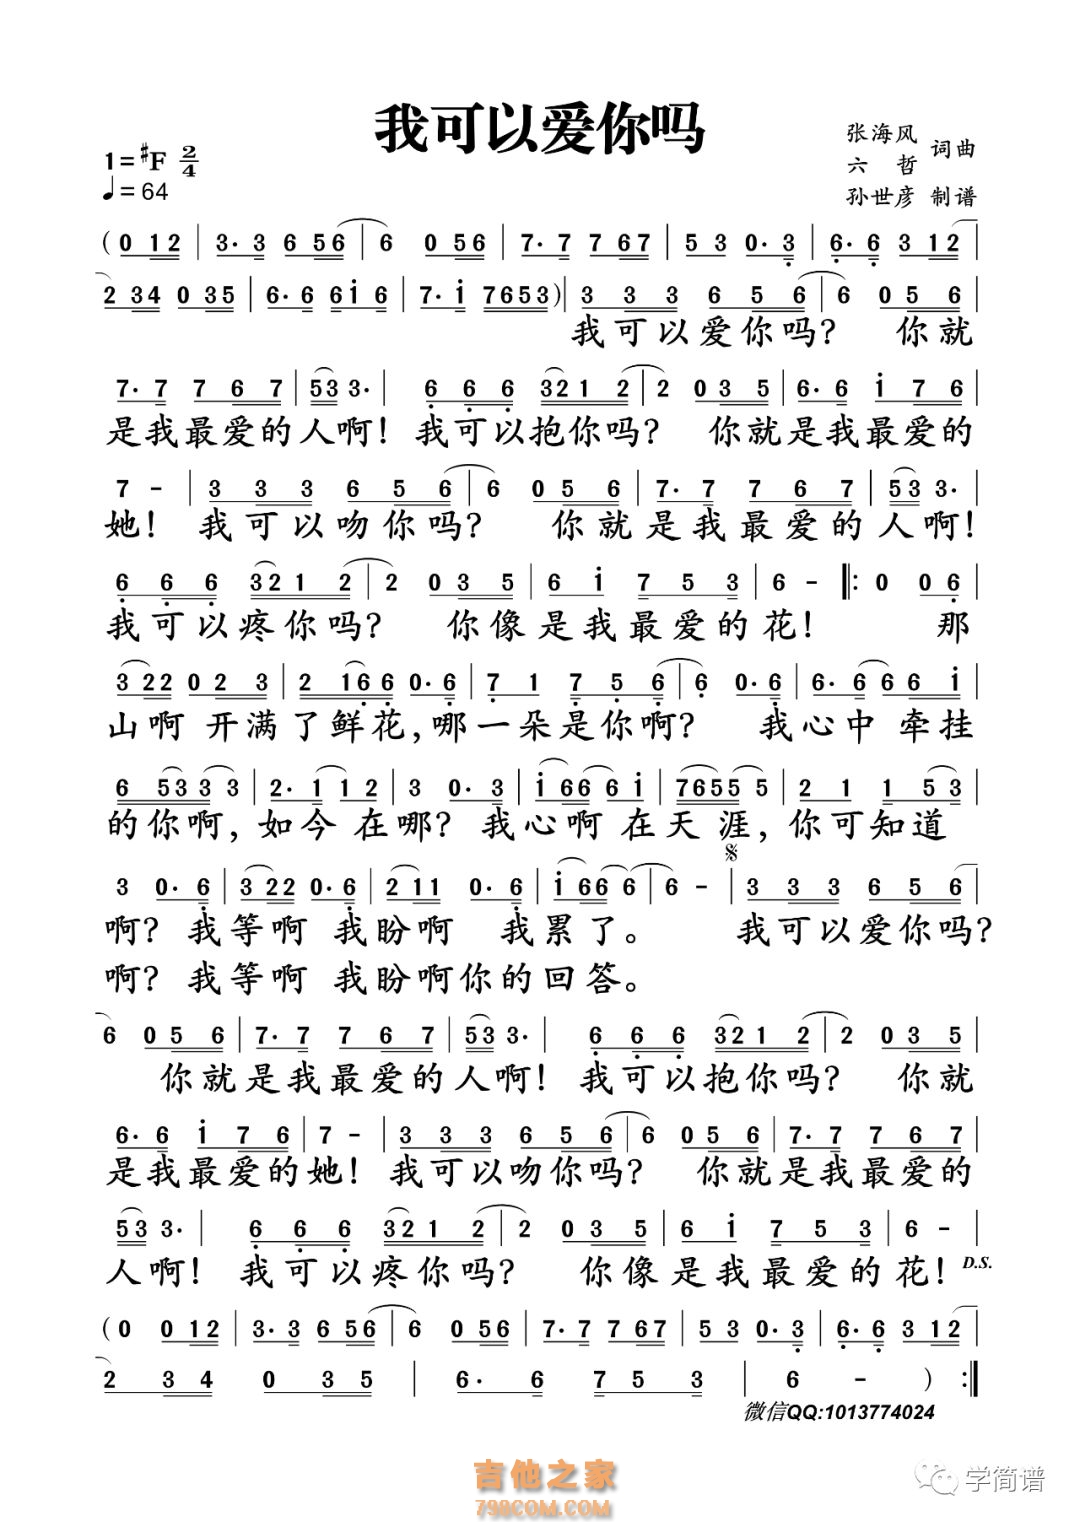 我可以爱你吗
张海风
六 哲 词曲
孙世彦 制谱
1=♯F 2/4
♩=64
(0 12 | 3· 3 6 56 | 6 0 56 | 7· 7 7 67 | 5 3 0· 3 | 6· 6 3 12 |
2 34 0 35 | 6· 6 6i 6 | 7· i 7653)| 3 3 3 6 5 6 | 6 0 5 6
我可以爱你吗? 你就
7· 7 7 6 7 | 53 3· | 6 6 6 321 2 | 2 0 3 5 | 6· 6 i 7 6 |
是我最爱的人啊! 我可以抱你吗? 你就是我最爱的
7 - | 3 3 3 6 5 6 | 6 0 5 6 | 7· 7 7 6 7 | 53 3· |
她! 我可以吻你吗? 你就是我最爱的人啊!
6 6 6 321 2 | 2 0 3 5 | 6 i 7 5 3 | 6 - ‖: 0 0 6 |
我可以疼你吗? 你像是我最爱的花! 那
3 22 0 2 3 | 2 166 0· 6 | 7 1 7 5 6 | 6 0· 6 | 6· 6 6 6 i |
山啊 开满了鲜花,哪一朵是你啊? 我心中 牵挂
6 533 3 | 2· 1 1 2 | 3 0· 3 | i 66 6 i | 7655 5 | 2 1 1 5 3 |
的你啊, 如今 在哪? 我心啊 在天 涯, 你可知道
𝄋
3 0· 6 | 3 22 0· 6 | 2 11 0· 6 | i 66 6 | 6 - | 3 3 3 6 5 6
啊? 我等啊 我盼啊 我累了。 我可以爱你吗?
啊? 我等啊 我盼啊你的回答。
6 0 5 6 | 7· 7 7 6 7 | 53 3· | 6 6 6 321 2 | 2 0 3 5 |
你就是我最爱的人啊! 我可以抱你吗? 你就
6· 6 i 7 6 | 7 - | 3 3 3 6 5 6 | 6 0 5 6 | 7· 7 7 6 7 |
是我最爱的她! 我可以吻你吗? 你就是我最爱的
53 3· | 6 6 6 321 2 | 2 0 3 5 | 6 i 7 5 3 | 6 - |
人啊! 我可以疼你吗? 你像是我最爱的花! D.S.
(0 0 12 | 3· 3 6 56 | 6 0 56 | 7· 7 7 67 | 5 3 0· 3 | 6· 6 3 12 |
2 3 4 0 3 5 | 6· 6 7 5 3 | 6 - ) :‖
微信QQ:1013774024
吉他之家
798COM.COM
学简谱